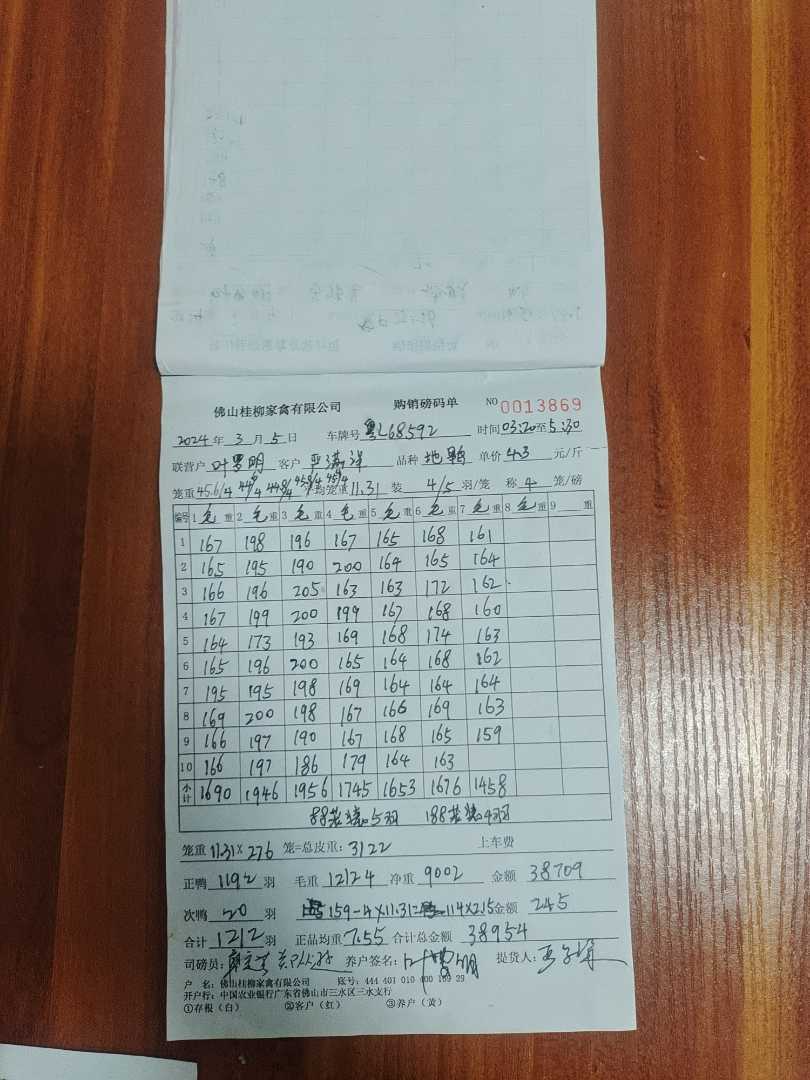 佛山桂柳家禽有限公司 购销磅码单 NO 0013869
2024年 3月 5日 车牌号 粤L68592 时间 03:20至5:30
联营户 叶罗明 客户 严满洋 品种 地鸭 单价 4.3 元/斤
笼重 45.6/4 均笼重 11.31 装 4/5 羽/笼 称 4 笼/磅
编号 1 毛重 2 毛重 3 毛重 4 毛重 5 毛重 6 毛重 7 毛重 8 毛重 9 重
1 167 198 196 167 165 168 161
2 165 195 190 200 164 165 164
3 166 196 205 163 163 172 162
4 167 199 200 199 167 168 160
5 164 173 193 169 168 174 163
6 165 196 200 165 164 168 162
7 195 195 198 169 164 164 164
8 169 200 198 167 166 169 163
9 166 197 190 167 168 165 159
10 166 197 186 179 164 163
小计 1690 1946 1956 1745 1653 1676 1458
88笼装5羽 188笼装4羽
笼重 11.31 × 276 笼=总皮重: 3122 上车费
正鸭 1192 羽 毛重 12124 净重 9002 金额 38709
次鸭 20 羽 159-4×11.31= 114×2.15 金额 245
合计 1212 羽 正品均重 7.55 合计总金额 38954
司磅员: 养户签名: 叶罗明 提货人:
户 名: 佛山桂柳家禽有限公司 账号: 444 401 010 400 169 39
开户行: 中国农业银行广东省佛山市三水区三水支行
①存根(白) ②客户(红) ③养户(黄)